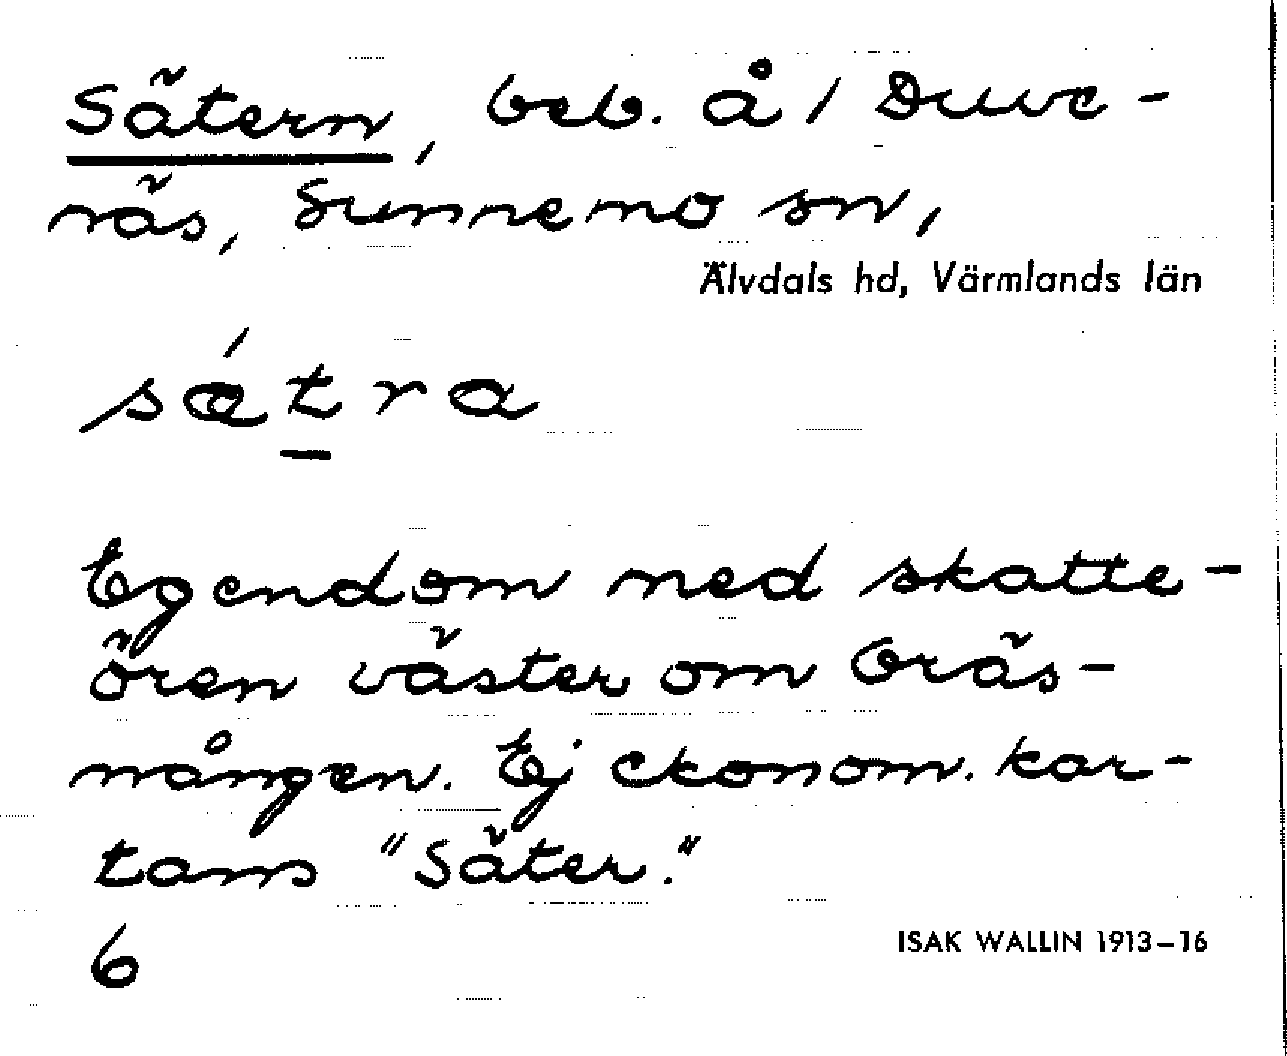 Sätern, beb. å 1 Duve-
näs, Sunnemo sn,
Älvdals hd, Värmlands län
sǽtra
Egendom med skatte-
ören väster om Gräs-
mången. Ej ekonom. kar-
tans "Säter."
6
ISAK WALLIN 1913–16